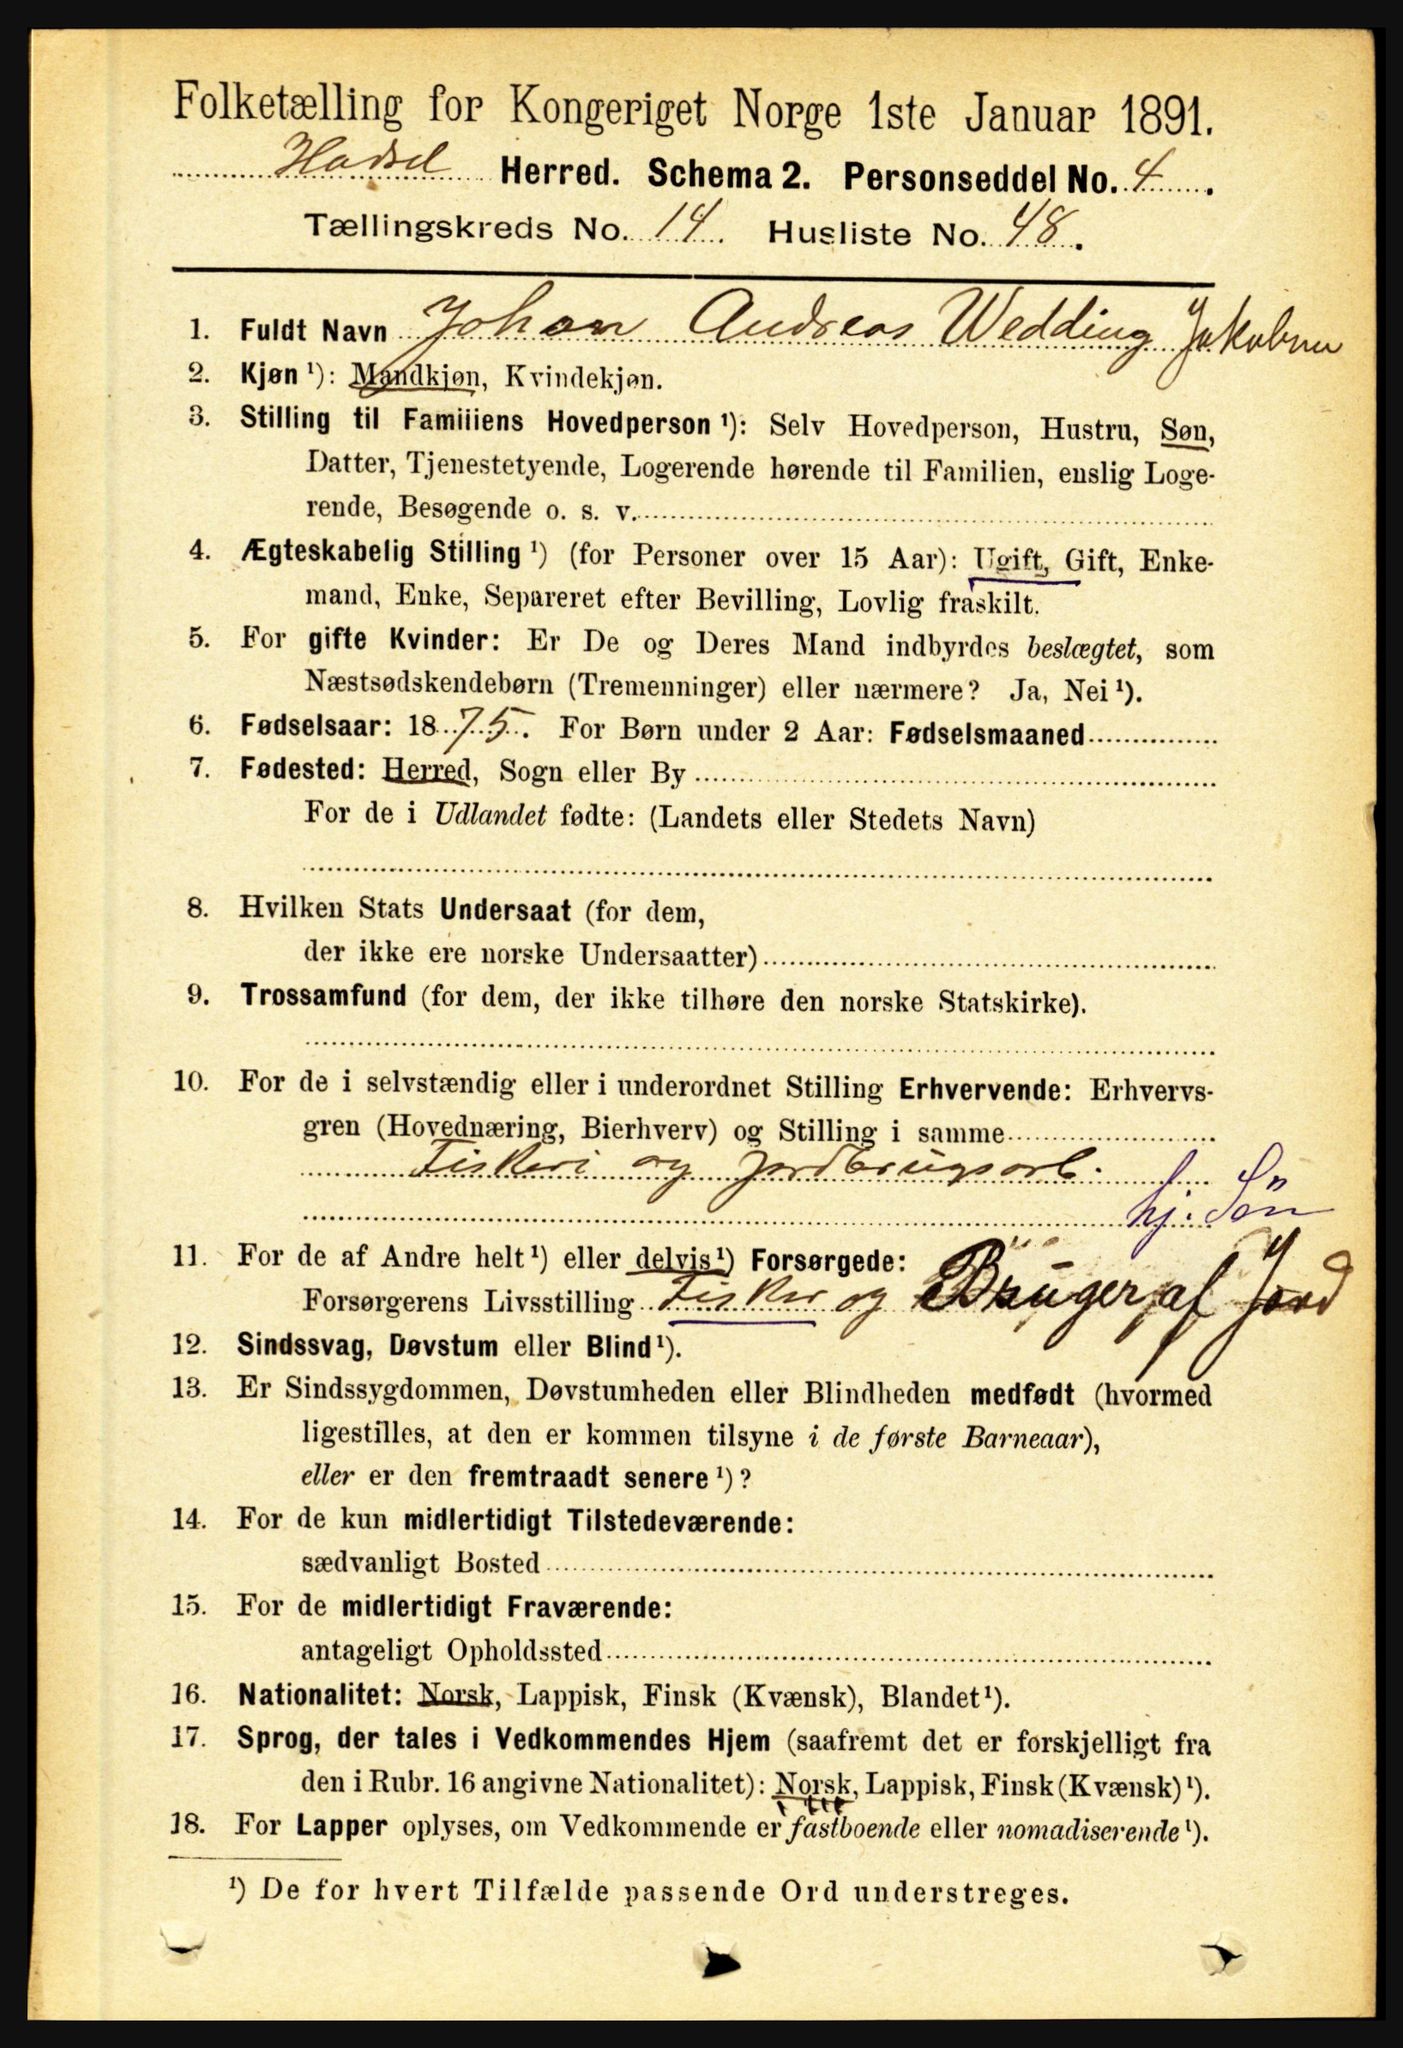 Folketælling for Kongeriget Norge 1ste Januar 1891.
Hadsel Herred. Schema 2. Personseddel No. 4.
Tællingskreds No. 14. Husliste No. 48.
1. Fuldt Navn Johan Andreas Wedding Jakobsen
2. Kjøn ¹): Mandkjøn, Kvindekjøn.
3. Stilling til Familiens Hovedperson ¹): Selv Hovedperson, Hustru, Søn,
Datter, Tjenestetyende, Logerende hørende til Familien, enslig Loge-
rende, Besøgende o. s. v.
4. Ægteskabelig Stilling ¹) (for Personer over 15 Aar): Ugift, Gift, Enke-
mand, Enke, Separeret efter Bevilling, Lovlig fraskilt.
5. For gifte Kvinder: Er De og Deres Mand indbyrdes beslægtet, som
Næstsødskendebørn (Tremenninger) eller nærmere? Ja, Nei ¹).
6. Fødselsaar: 1875. For Børn under 2 Aar: Fødselsmaaned
7. Fødested: Herred, Sogn eller By
For de i Udlandet fødte: (Landets eller Stedets Navn)
8. Hvilken Stats Undersaat (for dem,
der ikke ere norske Undersaatter)
9. Trossamfund (for dem, der ikke tilhøre den norske Statskirke).
10. For de i selvstændig eller i underordnet Stilling Erhvervende: Erhvervs-
gren (Hovednæring, Bierhverv) og Stilling i samme
Fiskeri og Jordbrugsarb.
hj. Søn
11. For de af Andre helt ¹) eller delvis ¹) Forsørgede:
Forsørgerens Livsstilling Fisker og Bruger af Jord
12. Sindssvag, Døvstum eller Blind ¹).
13. Er Sindssygdommen, Døvstumheden eller Blindheden medfødt (hvormed
ligestilles, at den er kommen tilsyne i de første Barneaar),
eller er den fremtraadt senere ¹)?
14. For de kun midlertidigt Tilstedeværende:
sædvanligt Bosted
15. For de midlertidigt Fraværende:
antageligt Opholdssted
16. Nationalitet: Norsk, Lappisk, Finsk (Kvænsk), Blandet ¹).
17. Sprog, der tales i Vedkommendes Hjem (saafremt det er forskjelligt fra
den i Rubr. 16 angivne Nationalitet): Norsk, Lappisk, Finsk (Kvænsk) ¹).
18. For Lapper oplyses, om Vedkommende er fastboende eller nomadiserende ¹).
¹) De for hvert Tilfælde passende Ord understreges.